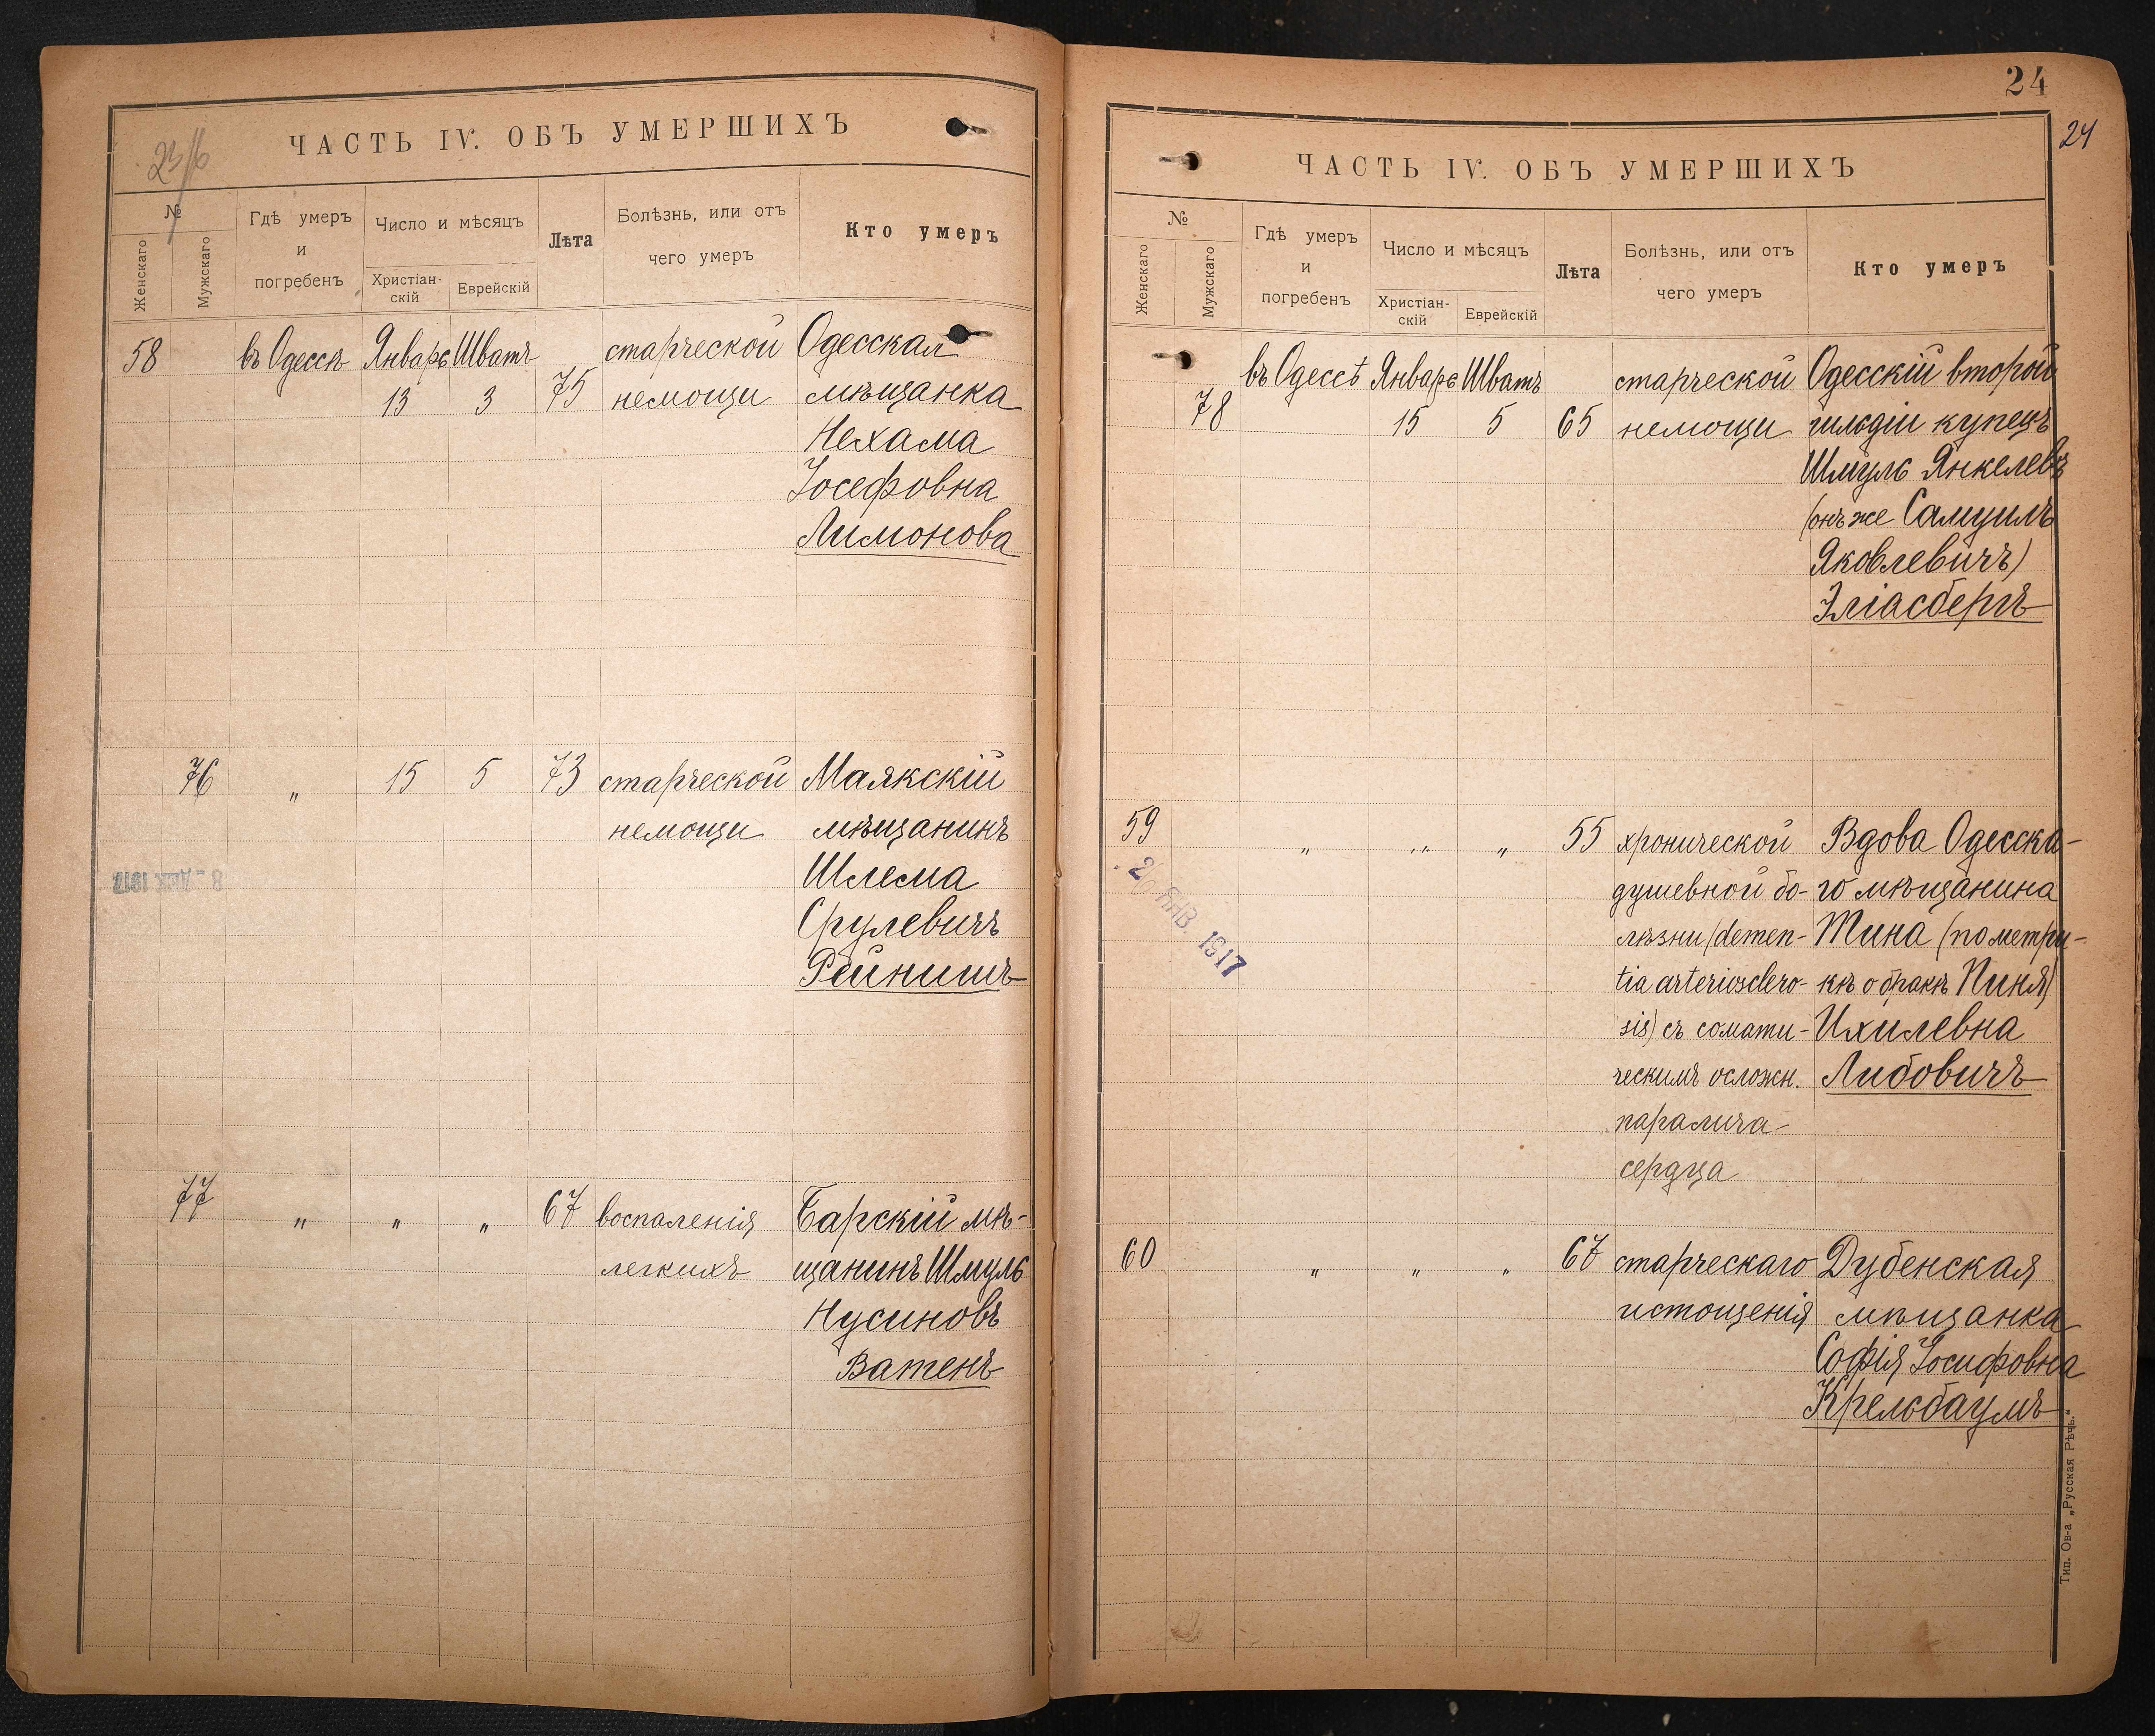 ЧАСТЬ IV. ОБЪ УМЕРШИХЪ
№
Женскаго
Мужскаго
Гдѣ умеръ
и
погребенъ
Число и мѣсяцъ
Христіан-
скій
Еврейскій
Лѣта
Болѣзнь, или отъ
чего умеръ
Кто умеръ
58 въ Одессѣ Январь Шватъ старческой Одесская
13 3 75 немощи мѣщанка
Нехама
Іосефовна
Лимонова
76 „ 15 5 73 старческой Маякскій
немощи мѣщанинъ
Шлема
Срулевичъ
Рейнишъ
8 - ДЕК 1917
77 „ „ „ 67 воспаленія Барскій мѣ-
легкихъ щанинъ Шмуль
Нусиновъ
Ватенъ
24
24
ЧАСТЬ IV. ОБЪ УМЕРШИХЪ
№
Женскаго
Мужскаго
Гдѣ умеръ
и
погребенъ
Число и мѣсяцъ
Христіан-
скій
Еврейскій
Лѣта
Болѣзнь, или отъ
чего умеръ
Кто умеръ
въ Одессѣ Январь Шватъ старческой Одесскій второй
78 15 5 65 немощи гильдіи купецъ
Шмуль Янкелевъ
(онъ же Самуилъ
Яковлевичъ)
Эліасбергъ
59 „ „ „ 55 хронической Вдова Одесска-
душевной бо- го мѣщанина
лѣзни (demen- Тина (по метри-
tia arteriosclero- кѣ о бракѣ Пиня)
sis) съ сомати- Ихилевна
ческимъ осложн. Либовичъ
паралича
сердца
ЯНВ. 1917
60 „ „ „ 67 старческаго Дубенская
истощенія мѣщанка
Софія Іосифовна
Крельбаумъ
Тип. Ов-а „Русская Рѣчь."